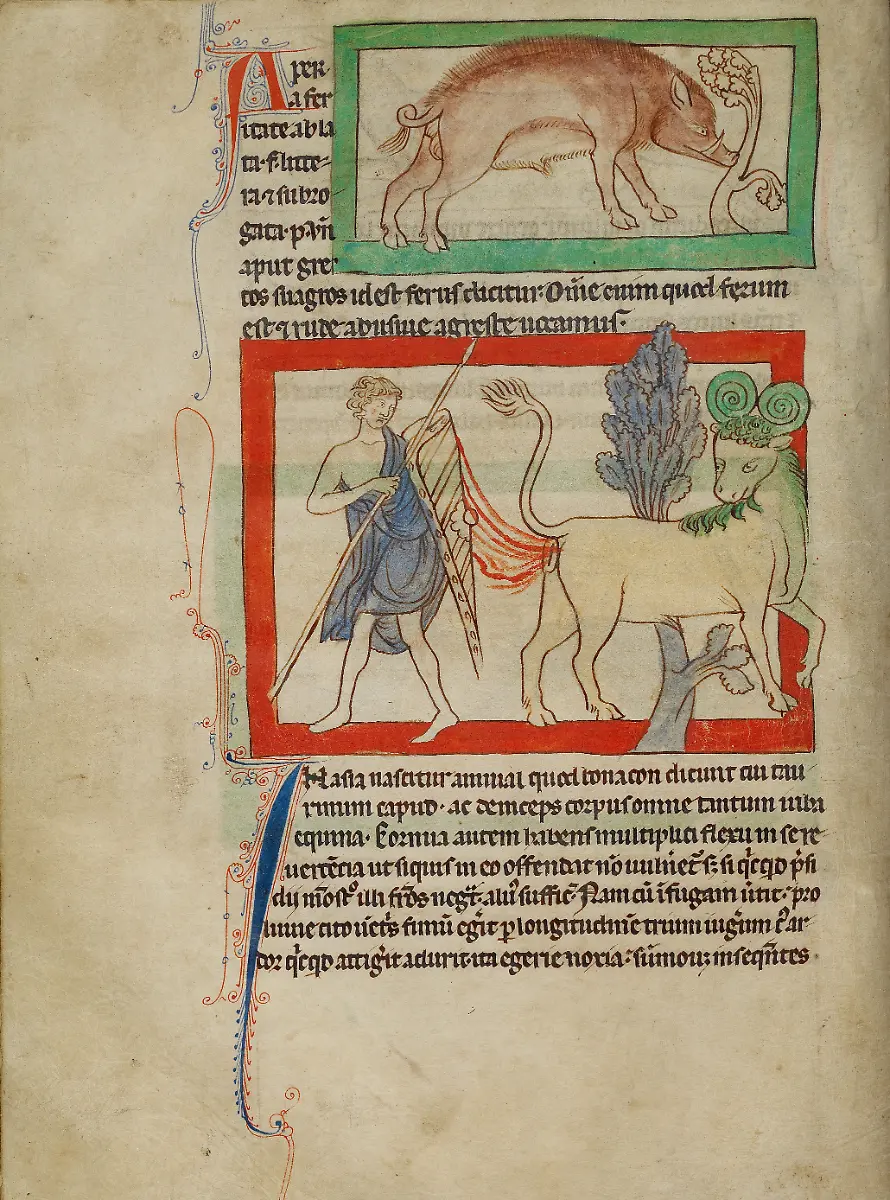 Aper
a fer
itate abla
ta·f·litte
ra ⁊ subro
gata·p·Vn̄
aput gre
cos suagros id est ferus dicitur· Om̄e enim quod ferum
est ⁊ rude abusiue agreste uocamus·
In asia nascitur animal quod bonacon dicunt cui tau
rinum capud· ac deinceps corpus omne tantum iuba
equina· Cornua autem habens multiplici flexu in se re
uertētia ut siquis in eo offendat nō uulnet᷒ s; si q̄cqd p̄si
dij
illi negat· Nam cū ī fugam pro
luuie cito uentͥs fimū egerit p longitudinē trium iugerum cͥ ar
dor q̄cqd attigͥt adurit· ita egerie noxia submouet inseqūtes